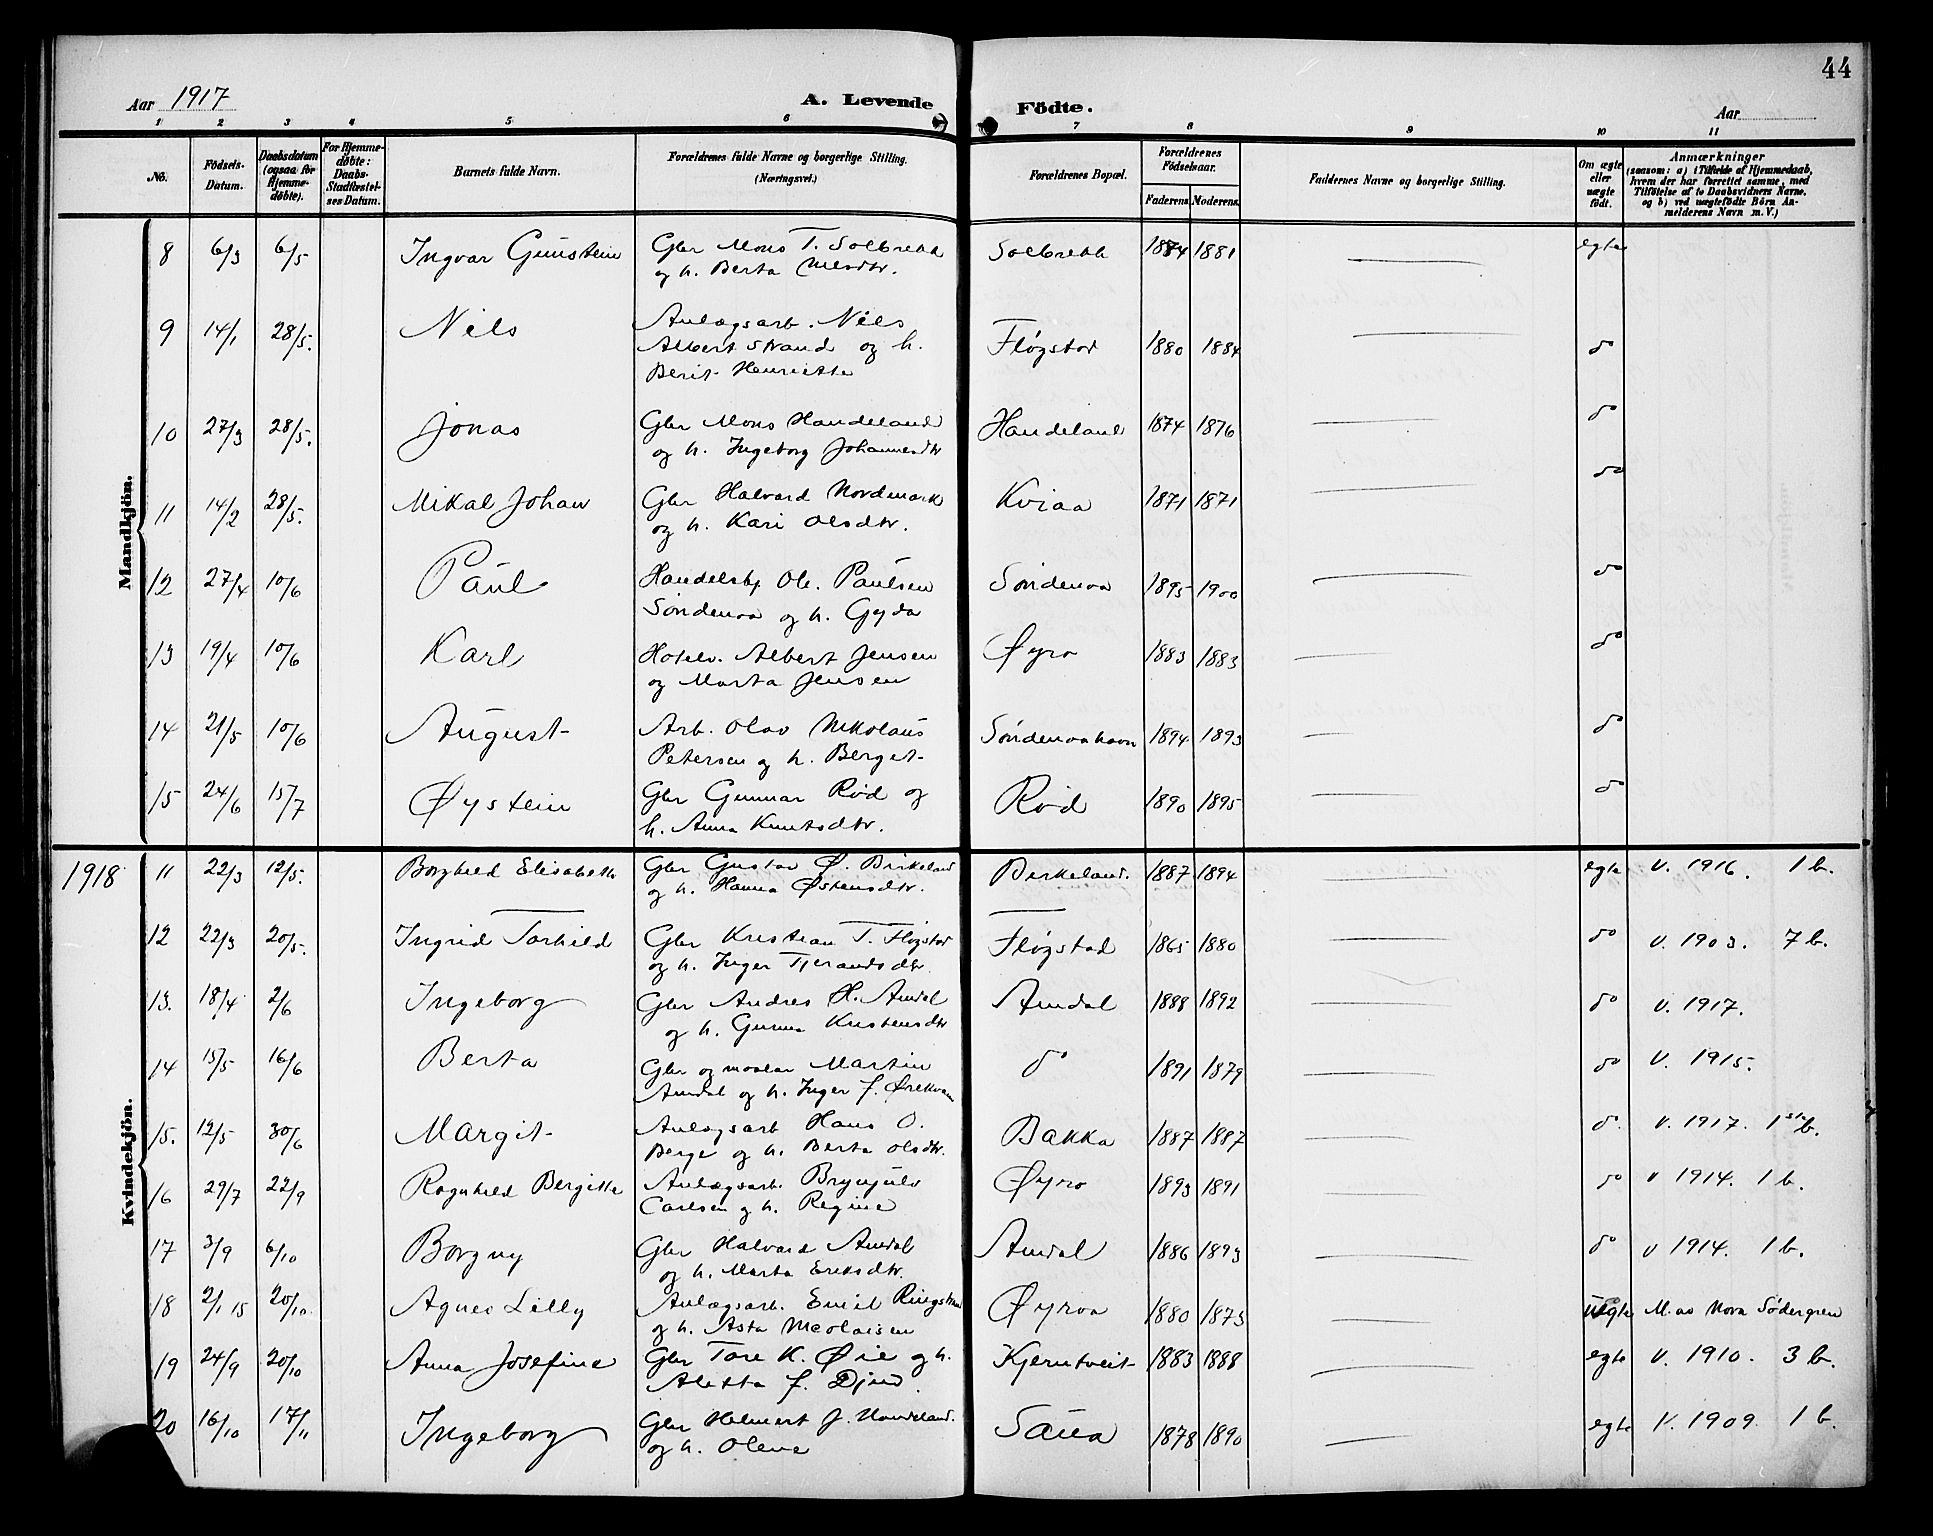 44
Aar 1917
A. Levende
Födte.
Aar
1 2 3 4 5 6 7 8 9 10 11
No.
Födsels-Datum.
Daabsdatum (ogsaa for Hjemme-døbte).
For Hjemme-døbte: Daabs-Stadfæstel-ses Datum.
Barnets fulde Navn.
Forældrenes fulde Navne og borgerlige Stilling. (Næringsvei.)
Forældrenes Bopæl.
Forældrenes Födselsaar.
Faderens. Moderens.
Faddernes Navne og borgerlige Stilling.
Om ægte eller uægte født.
Anmærkninger
(saasom: a) i Tilfælde af Hjemmedaab, hvem der har forrettet samme, med Tilföielse af to Daabsvidners Navne, og b) ved uægtefødte Börn An-melderens Navn m. V.)
Mandkjön.
8 6/3 6/5 Ingvar Gunstein Gbr Mons T. Solbrekk Solbrekk 1874 1881 egte
og h. Berta
9 14/1 28/5. Nils Anlægsarb. Nils
Albert Strand og h. Fløgstad 1880 1884 do
Berit Henriette
10 27/3 28/5. Jonas Gbr Mons Handeland Handeland 1874 1876 do
og h. Ingeborg Johannesdtr
11 14/2 28/5. Mikal Johan Gbr Halvard Nordmark Kviaa 1871 1871 do
og h. Kari Olsdtr.
12 27/4 10/6 Paul Handelsbj. Ole Paulsen Søndenaa 1895 1900 do
Søndenaa og h. Gyda
13 19/4 10/6 Karl Hotelv. Albert Jensen Øyro 1883 1883 do
og Marta Jensen
14 21/5 10/6 August Arb. Olav Nikolaus Søndenaahavn 1894 1893 do
Petersen og h. Berget
15 24/6 15/7 Øystein Gbr Gunnar Rød og Rød 1890 1895 do
h. Anna Knutsdtr.
1918
Kvindekjön.
11 22/3 12/5. Borghild Elisabeth Gbr Gustav Ø. Birkeland Birkeland. 1887 1894 egte V. 1916. 1 b.
og h. Hanna Østensdtr.
12 22/3 20/5. Ingrid Torhild Gbr Kristian T. Fløgstad Fløgstad 1865 1880 do V. 1903. 7 b.
og h. Inger Tjerandsdtr.
13. 18/4 2/6 Ingeborg Gbr Andres H. Amdal Amdal 1888 1892 do V. 1917.
og h. Gunna Kristensdtr
14 15/5 16/6 Berta Gbr og maaler Martin do 1891 1879 do V. 1915.
Amdal og h. Inger f. Ørekvam
15. 12/5 30/6 Margit Anlægsarb Hans O. Bakka 1887 1887 do. V. 1917. 1ste b.
Berge og h. Berta Olsdtr.
16 29/7 22/9 Ragnhild Bergitte Anlægsarb. Brynjulv Øyro 1893 1891 do V 1914. 1 b.
Carlsen og h. Regine
17 3/9 6/10 Borgny Gbr Halvard Amdal Amdal 1886 1893 do V 1914. 1 b.
og h. Marta Eriksdtr.
18 2/1 15 20/10 Agnes Lilly Anlægsarb. Emil Ringstrøm Øyroa 1880 1873 uegte M. av Nora Södergren
og h. Asta Nicolaisen
19 24/9 20/10 Anna Josefine Gbr Tore K. Øie og h. Kjerntveit 1883 1888 egte V. 1910. 3 b.
Aletta f.
20 16/10 17/11 Ingeborg Gbr Helmert J. Handeland. Saua 1878 1890 egte V. 1909. 1 b.
og h. Olena